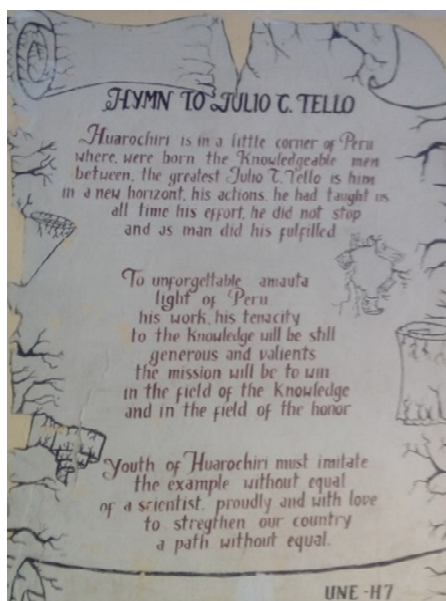 HYMN TO JULIO C. TELLO
Huarochiri is in a little corner of Peru
where, were born the Knowledgeable men
between, the greatest Julio C. Tello is him
in a new horizont, his actions, he had taught us
all time his effort, he did not stop
and as man did his fulfilled
To unforgettable amauta
light of Peru
his work, his tenacity
to the Knowledge will be still
generous and valients
the mission will be to win
in the field of the Knowledge
and in the field of the honor
Youth of Huarochiri must imitate
the example without equal
of a scientist, proudly and with love
to stregthen our country
a path without equal.
UNE-H7